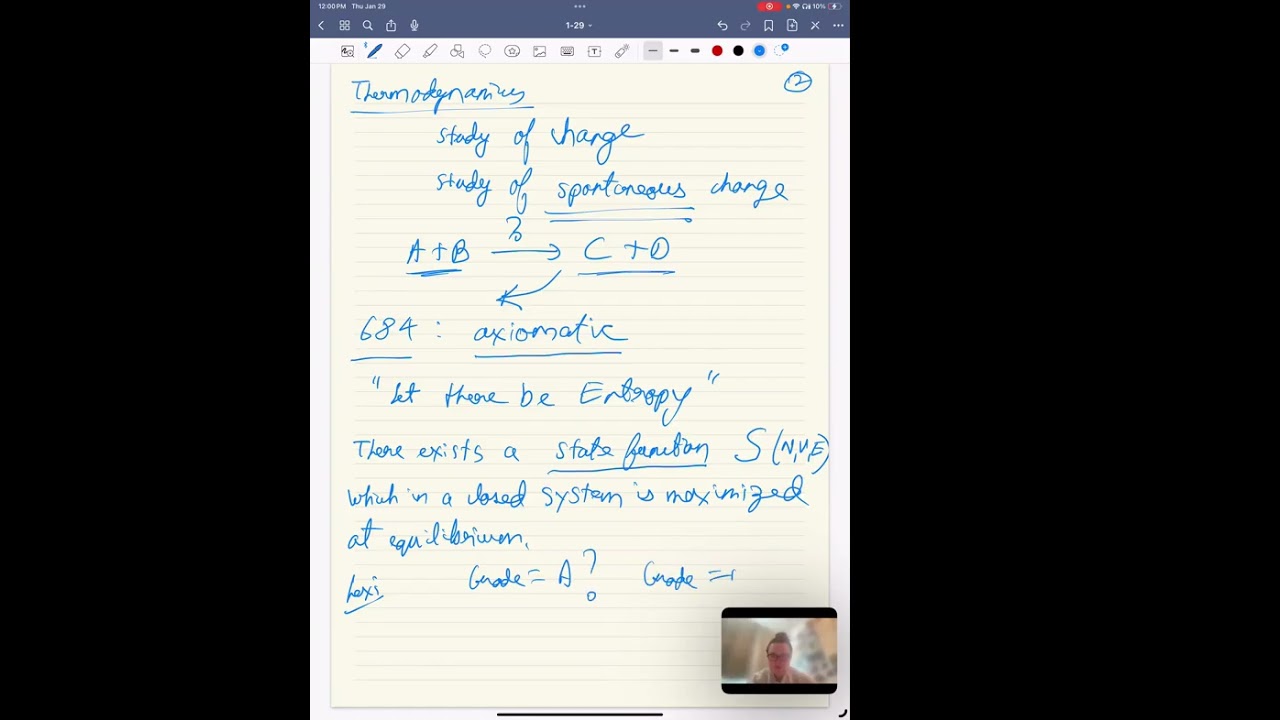 12:00 PM Thu Jan 29
10%
1-29
Thermodynamics
2
study of change
study of spontaneous change
?
A + B → C + D
684 : axiomatic
"Let there be Entropy"
There exists a state function S(N,V,E)
which in a closed system is maximized
at equilibrium.
Lexi Grade = A ? Grade =